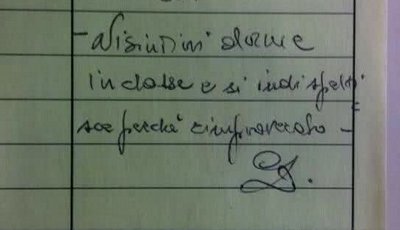 - Visintini dorme
in classe e si indispetti
sce perché rimproverato -